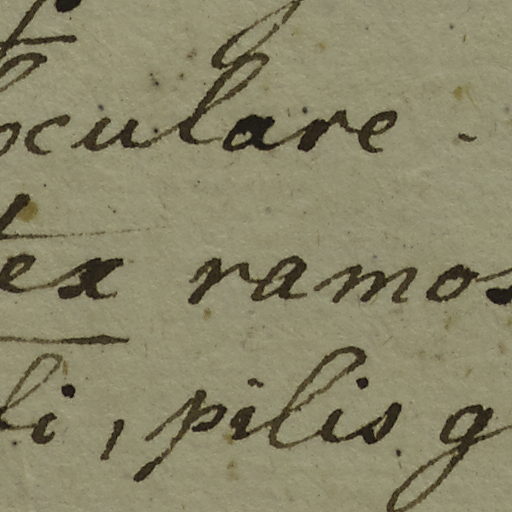 loculare.
tex ramos
li, pilis g